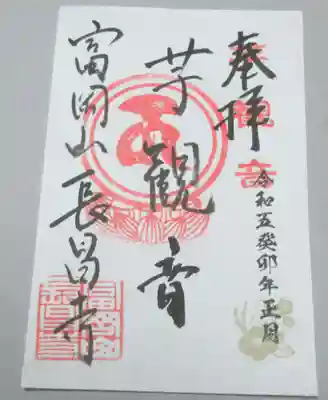 奉拝
令和五癸卯年正月
芋観音
富岡山長昌寺